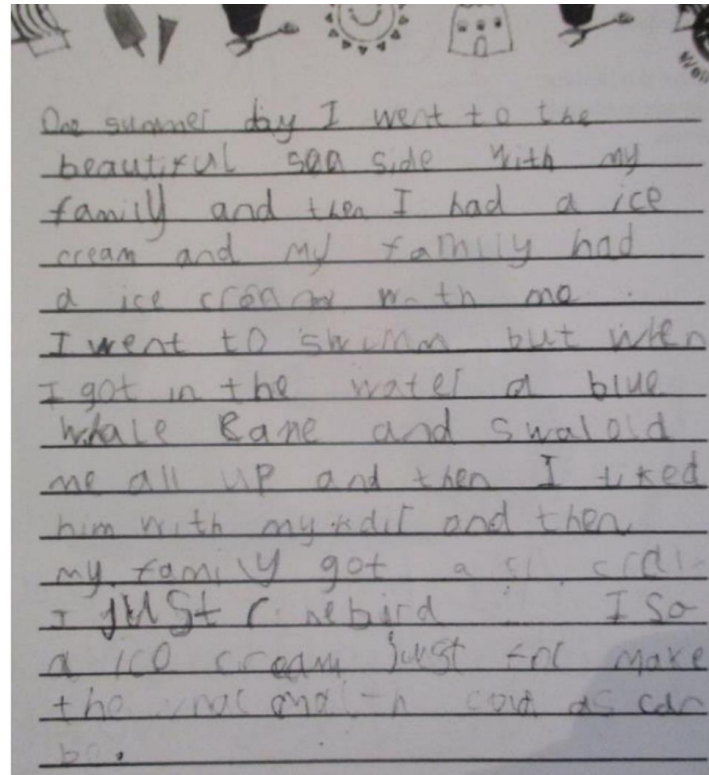 One summer day I went to the
beautiful sea side with my
family and then I had a ice
cream and my family had
a ice cream with me.
I went to swimm but when
I got in the water a blue
whale came and swalold
me all up and then I tiked
him with my and then
my family got a
I just I so
a ice cream just make
the cold as can
be.